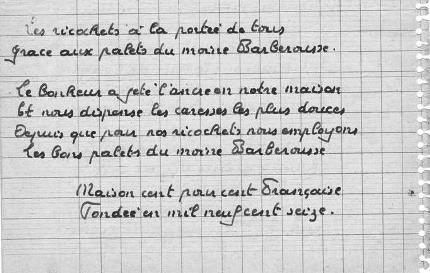 Les ricochets à la portée de tous
Grace aux palets du moine Barberousse.
Le Bonheur a jeté l'ancre en notre maison
Et nous dispense les caresses les plus douces
Depuis que pour nos ricochets nous employons
Les bons palets du moine Barberousse
Maison cent pour cent Française
Fondée en mil neuf cent seize.